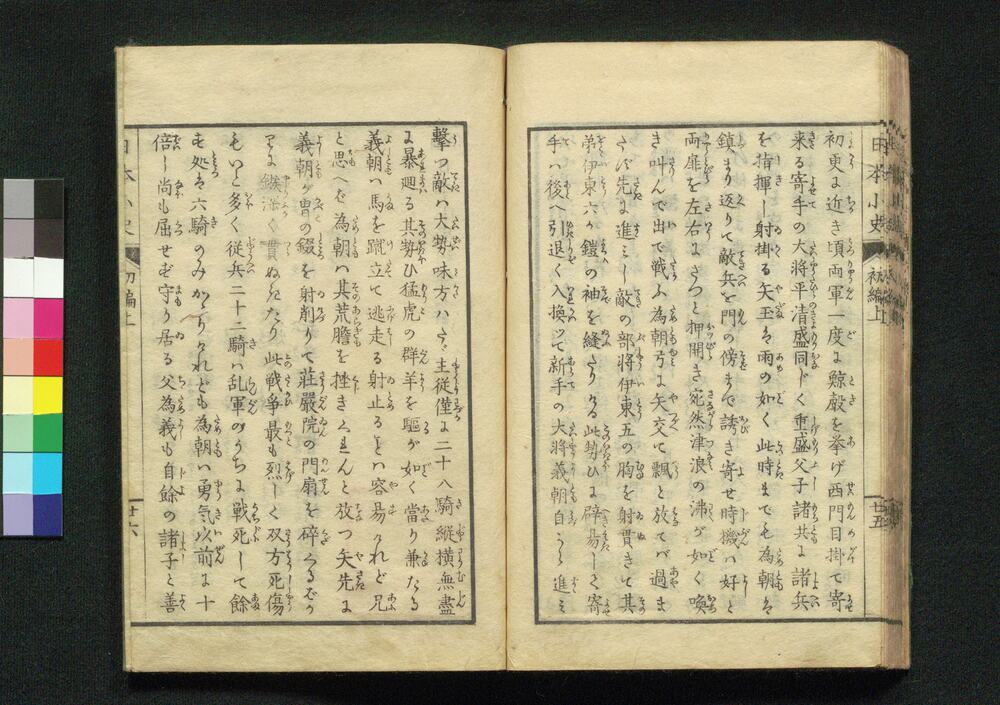 日本小史 初編上 廿五
初更に近き頃両軍一度に鯨殻を挙げ西門目掛て寄
来る寄手の大将平清盛同じく重盛父子諸共に諸兵
を指揮し射掛る矢玉は雨の如く此時までも為朝は
鎮まり返りて敵兵を門の傍まで誘き寄せ時機は好と
両扉を左右にさつと押開き宛然津浪の沸が如く喚
き叫んで出で戦ふ為朝弓に矢交て飄と放てバ過ま
たず先に進みし敵の部将伊東五の胸を射貫きて其
弟伊東六が鎧の袖を縫たりける此勢ひに辟易して寄
手ハ後へ引退く入換ツて新手の大将義朝自から進ミ
撃つ敵ハ大勢味方ハ主従僅に二十八騎縦横無盡
に暴廻る其勢ひ猛虎の群羊を駆が如く當り兼たる
義朝ハ馬を蹴立て逃走る射止るハ容易けれど兄
と思へを為朝ハ其荒膽を挫きくれんと放つ矢先に
義朝が冑の綴を射削りて荘嚴院の門扇を砕くるばか
りに鏃深く貫ぬきたり此戦争最も烈しく双方死傷
もいと多く従兵二十二騎ハ乱軍のうちに戦死して餘
す処は六騎のみかゝりけれども為朝ハ勇気以前に十
倍し尚も屈せず守り居る父為義も自餘の諸子と善
日本小史 初編上 廿六